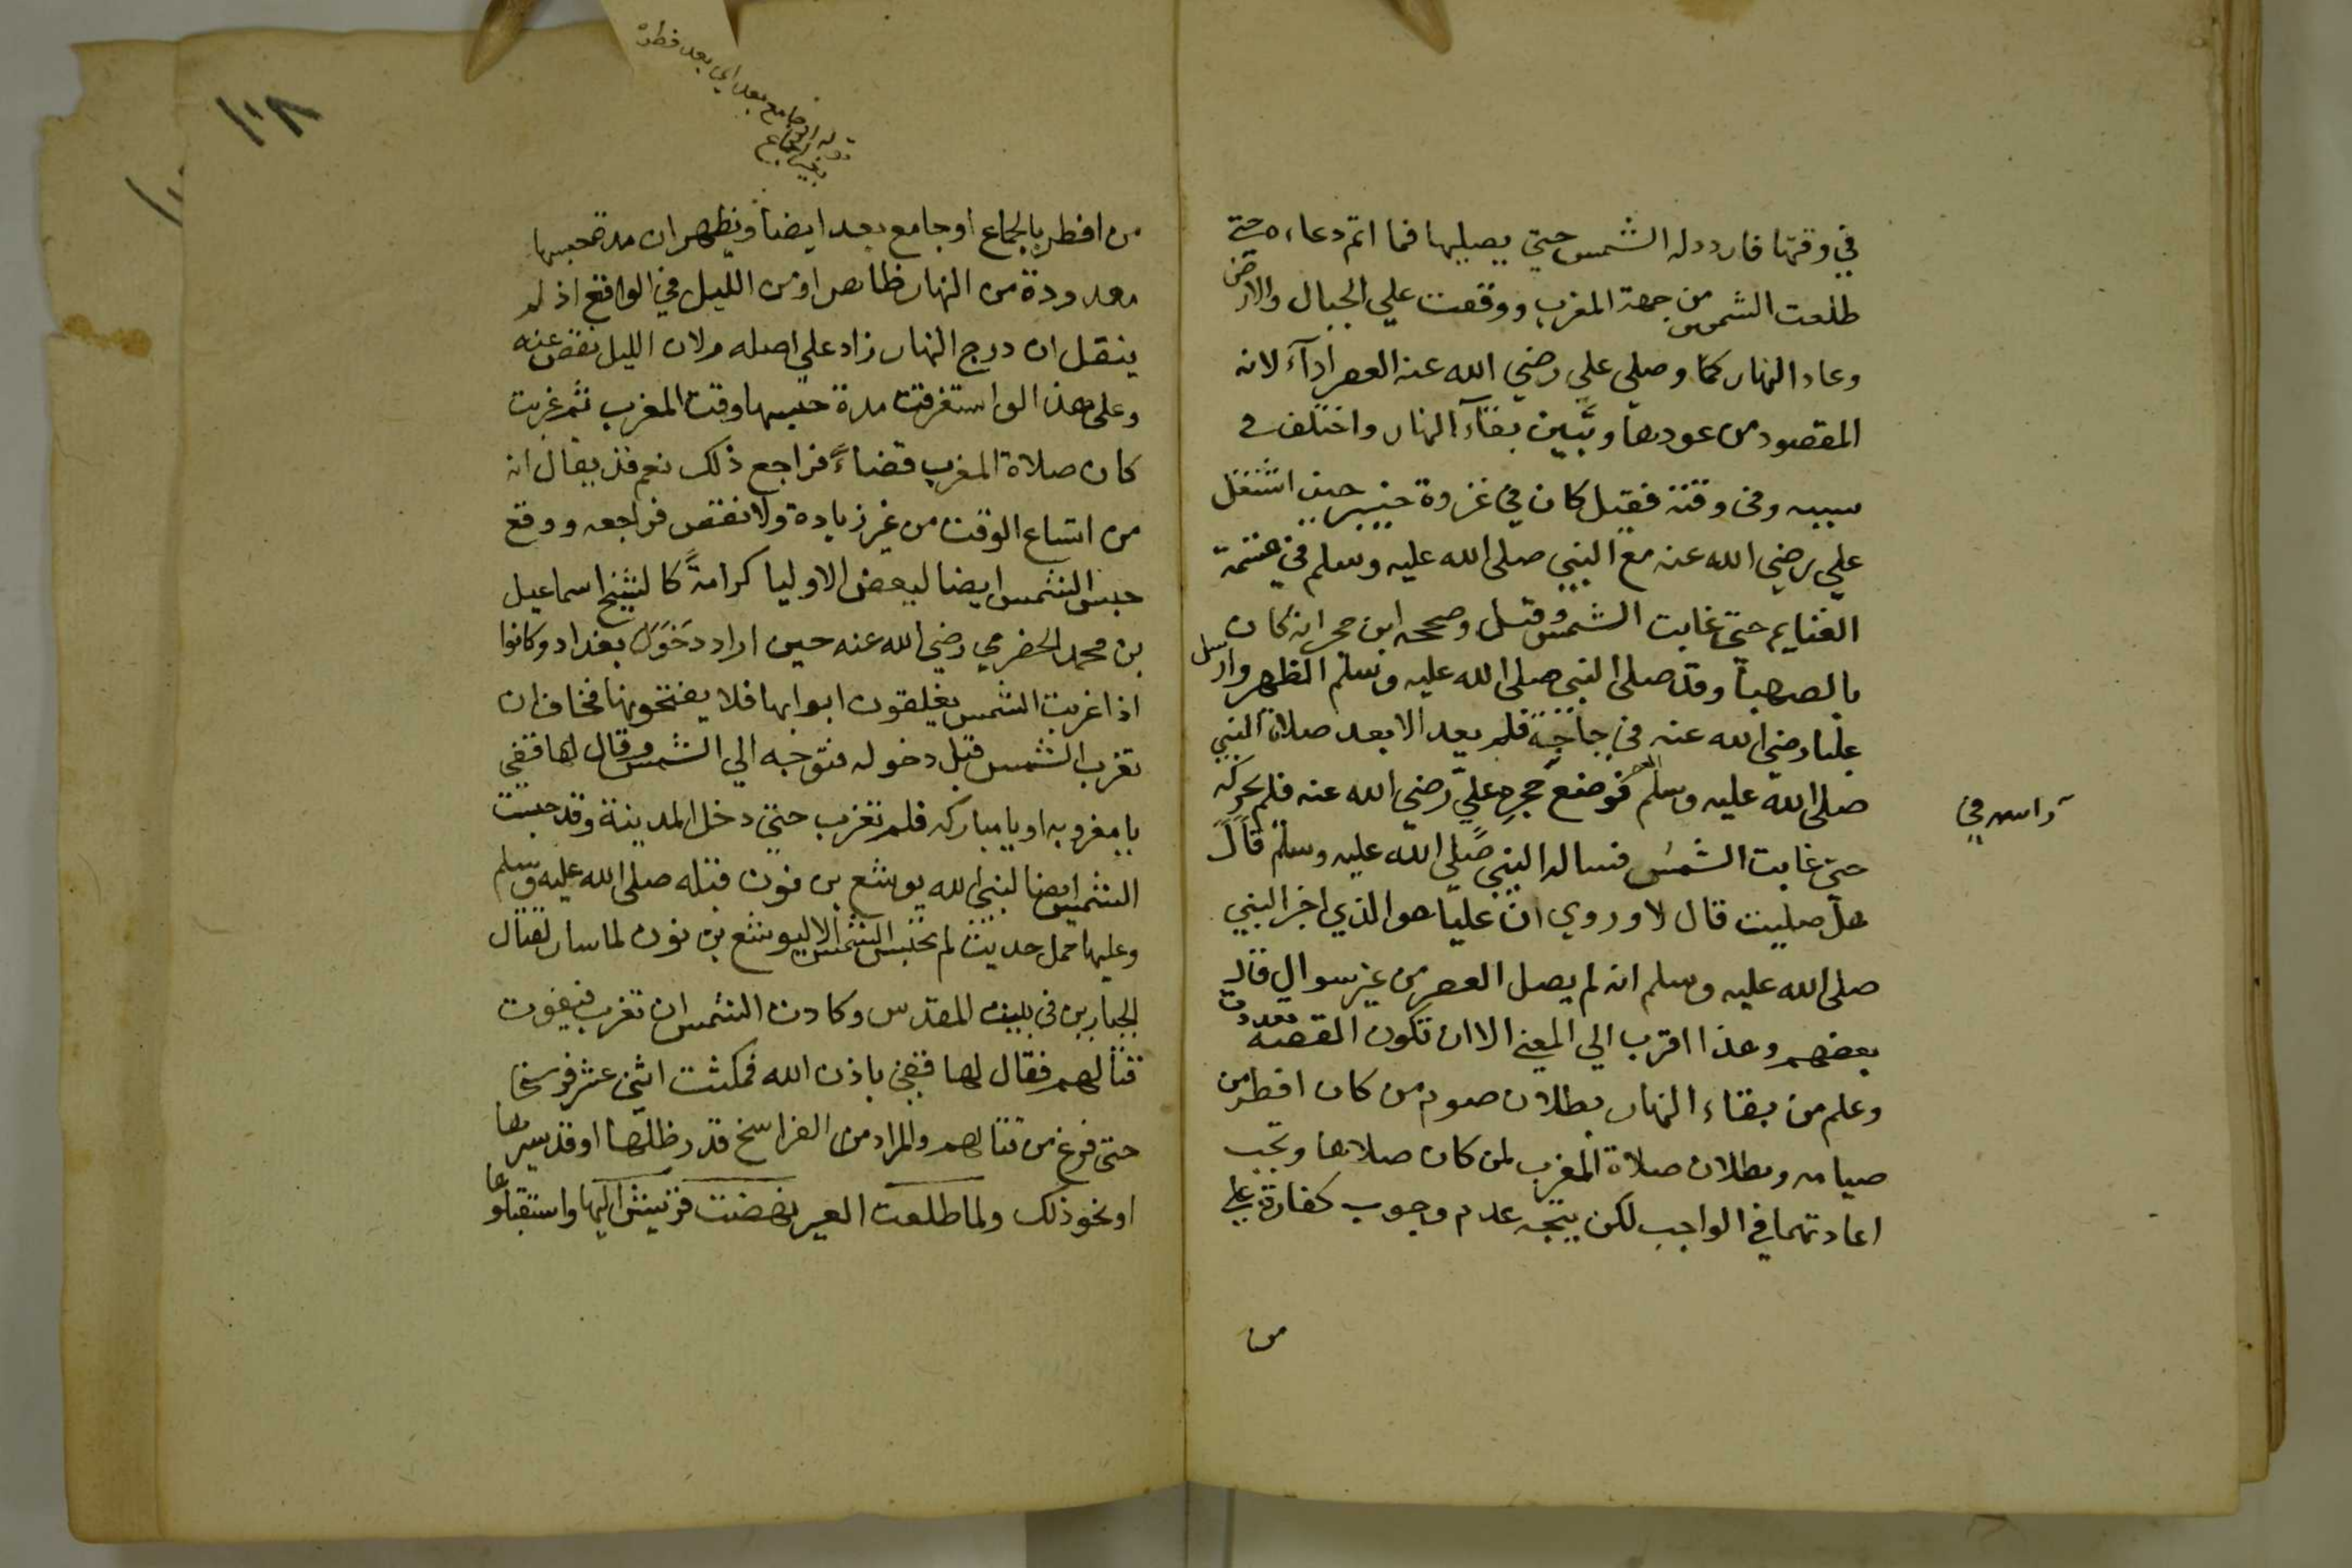 في وقتها فاردد له الشمس حتي يصليها فما اتم دعاءه حتي
طلعت الشمس من جهة المغرب ووقفت علي الجبال والارض
وعاد النهار كما وصلي علي رضي الله عنه العصر ادآء لانه
المقصود من عودها وتبين بقآء النهار واختلف في
سببه وفي وقته فقيل كان في غزوة خيبر حين اشتغل
علي رضي الله عنه مع النبي صلى الله عليه وسلم في قسمة
الغنايم حتي غابت الشمس وقيل وصححه ابن حجر انه كان
بالصهبآ وقد صلى النبي صلى الله عليه وسلم الظهر وارسل
عليا رضي الله عنه في حاجة فلم يعد الا بعد صلاة النبي
صلى الله عليه وسلم العصر فوضع حجر علي رضي الله عنه فلم يحركه
راسه في
حتي غابت الشمس فساله النبي صلى الله عليه وسلم قال
هل صليت قال لا وروي ان عليا هو الذي اخبر النبي
صلى الله عليه وسلم انه لم يصل العصر من غير سوال قال
بعضهم وهذا اقرب الي المعني الا ان تكون القصة تعددت
وعلم من بقاء النهار بطلان صوم من كان افطر من
صيامه وبطلان صلاة المغرب لمن كان صلاها وتجب
اعادتهما في الواجب لكن يتجه عدم وجوب كفارة علي
من
١٠٨
قوله او جامع بعد اي بعد فطره
بغير الجماع
من افطر بالجماع او جامع بعد ايضا ويظهر ان مدة حبسها
معدودة من النهار ظاهر او من الليل في الواقع اذ لم
ينقل ان درج النهار زاد علي اصله ولان الليل نقص عنه
وعلى هذا لو استغرقت مدة حبسها وقت المغرب ثم غربت
كان صلاة المغرب قضاءً فراجع ذلك نعم قد يقال انه
من اتساع الوقت من غير زيادة ولا نقص فراجعه ووقع
حبس الشمس ايضا لبعض الاوليا كرامةً كالشيخ اسماعيل
بن محمد الحضرمي رضي الله عنه حين اراد دخول بغداد وكانوا
اذا غربت الشمس يغلقون ابوابها فلا يفتحونها فخاف ان
تغرب الشمس قبل دخوله فتوجه الي الشمس وقال لها قفي
يا مغروبه او يا مباركه فلم تغرب حتي دخل المدينة وقد حبست
الشمس ايضا لنبي الله يوشع بن نون قبله صلى الله عليه وسلم
وعليها حمل حديث لم تحبس الشمس الا ليوشع بن نون لما سار لقتال
الجبارين في بيت المقدس وكادت الشمس ان تغرب فيفوت
قتالهم فقال لها قفي باذن الله فمكثت اثني عشر فرسخا
حتى فرغ من قتالهم والمراد من الفراسخ قدر ظلها او قدر سيرها
او نحو ذلك ولما طلعت العير نهضت قريش اليها واستقبلوها